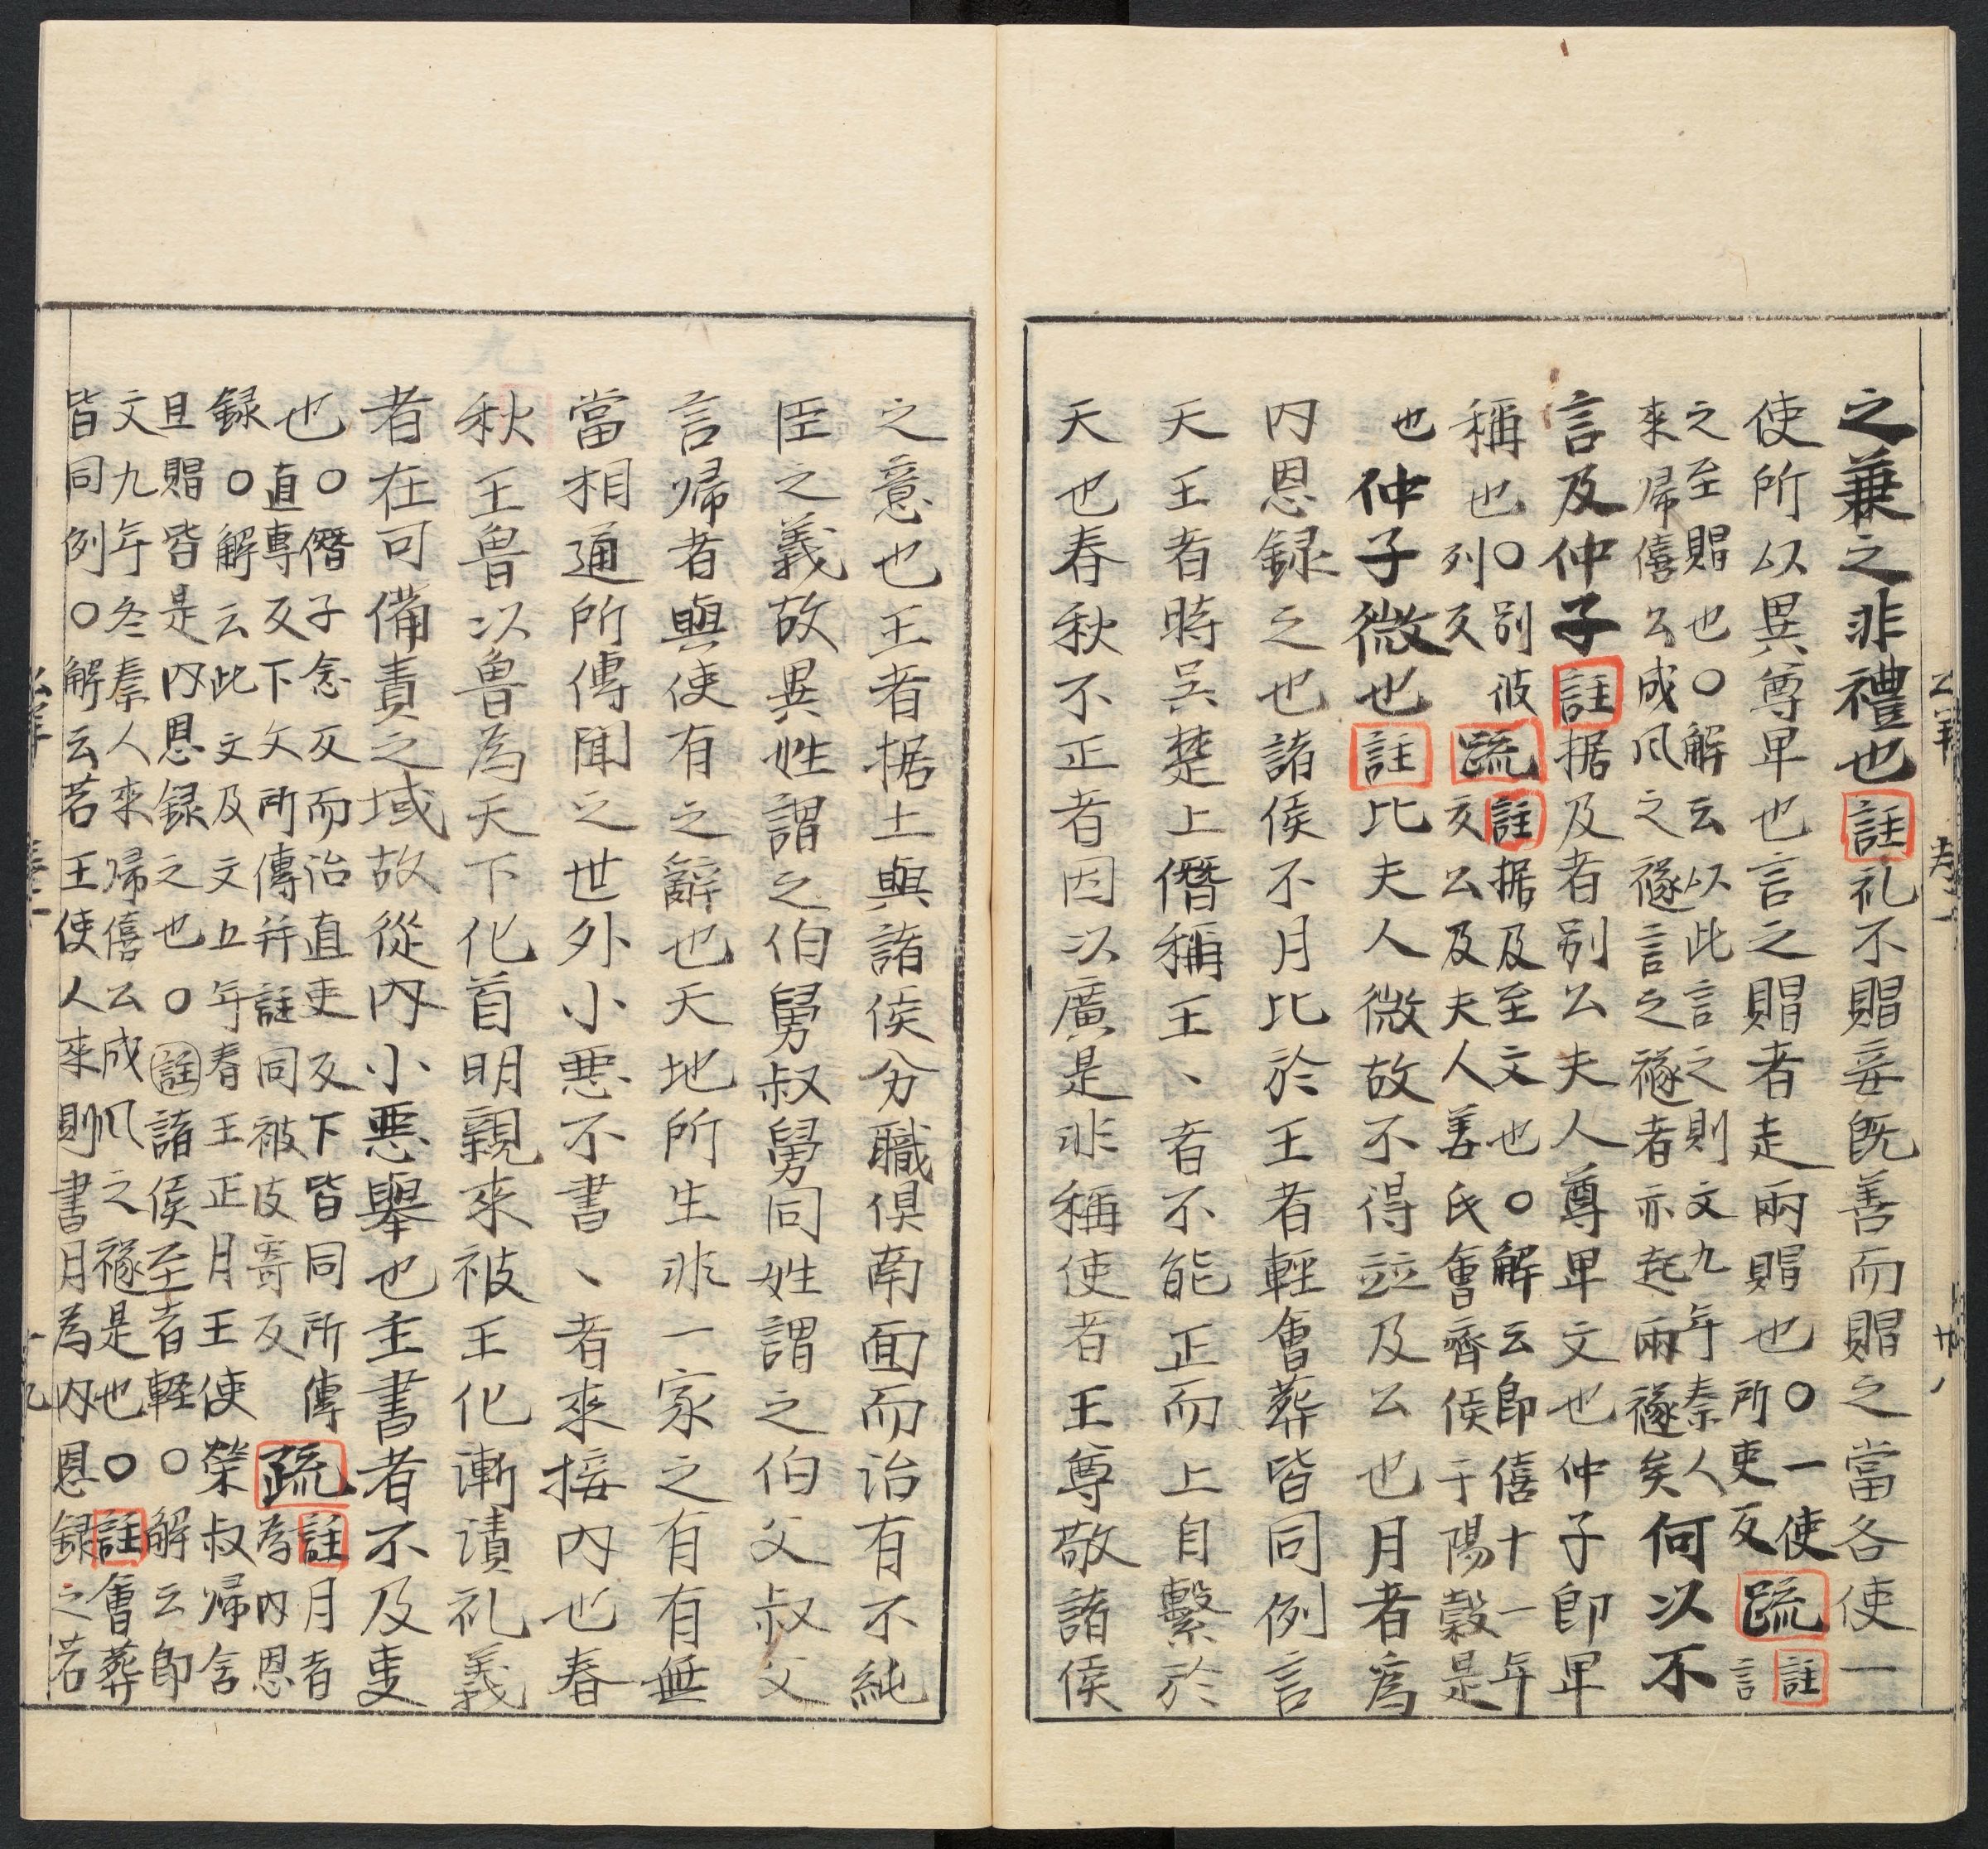 之兼之非禮也註礼不賵妾既善而賵之當各使一
使所以異尊卑也言之賵者走兩賵也〇一使疏註
所吏反言
之至賵也〇解云以此言之則文九年秦人
來歸僖公成风之襚言之襚者亦起兩襚矣何以不
言及仲子註据及者別公夫人尊卑文也仲子即卑
稱也〇別彼疏註据及至文也〇解云即僖十一年
列反文公及夫人姜氏會齊侯于陽穀是
也仲子微也註比夫人微故不得並及公也月者爲
内恩録之也諸侯不月比於王者輕會葬皆同例言
天王者時吴楚上僭稱王、者不能正而上自繫於
天也春秋不正者因以廣是非稱使者王尊敬諸侯
之意也王者据土與諸侯分職俱南面而治有不純
臣之義故異姓謂之伯舅叔舅同姓謂之伯父叔父
言歸者與使有之辭也天地所生非一家之有有無
當相通所傳聞之世外小悪不書、者來接内也春
秋王魯以魯為天下化首明親來被王化漸漬礼義
者在可備責之域故從内小悪舉也主書者不及事
也〇僭子念反而治直吏反下皆同所傳疏註月者
直專反下文所傳并註同被皮寄反為内恩
録〇解云此文及文五年春王正月王使榮叔歸含
且賵皆是内恩録之也〇註諸侯至者輕〇解云即
文九年冬秦人來歸僖公成风之襚是也〇註會葬
皆同例〇解云若王使人來則書月為内恩録之若